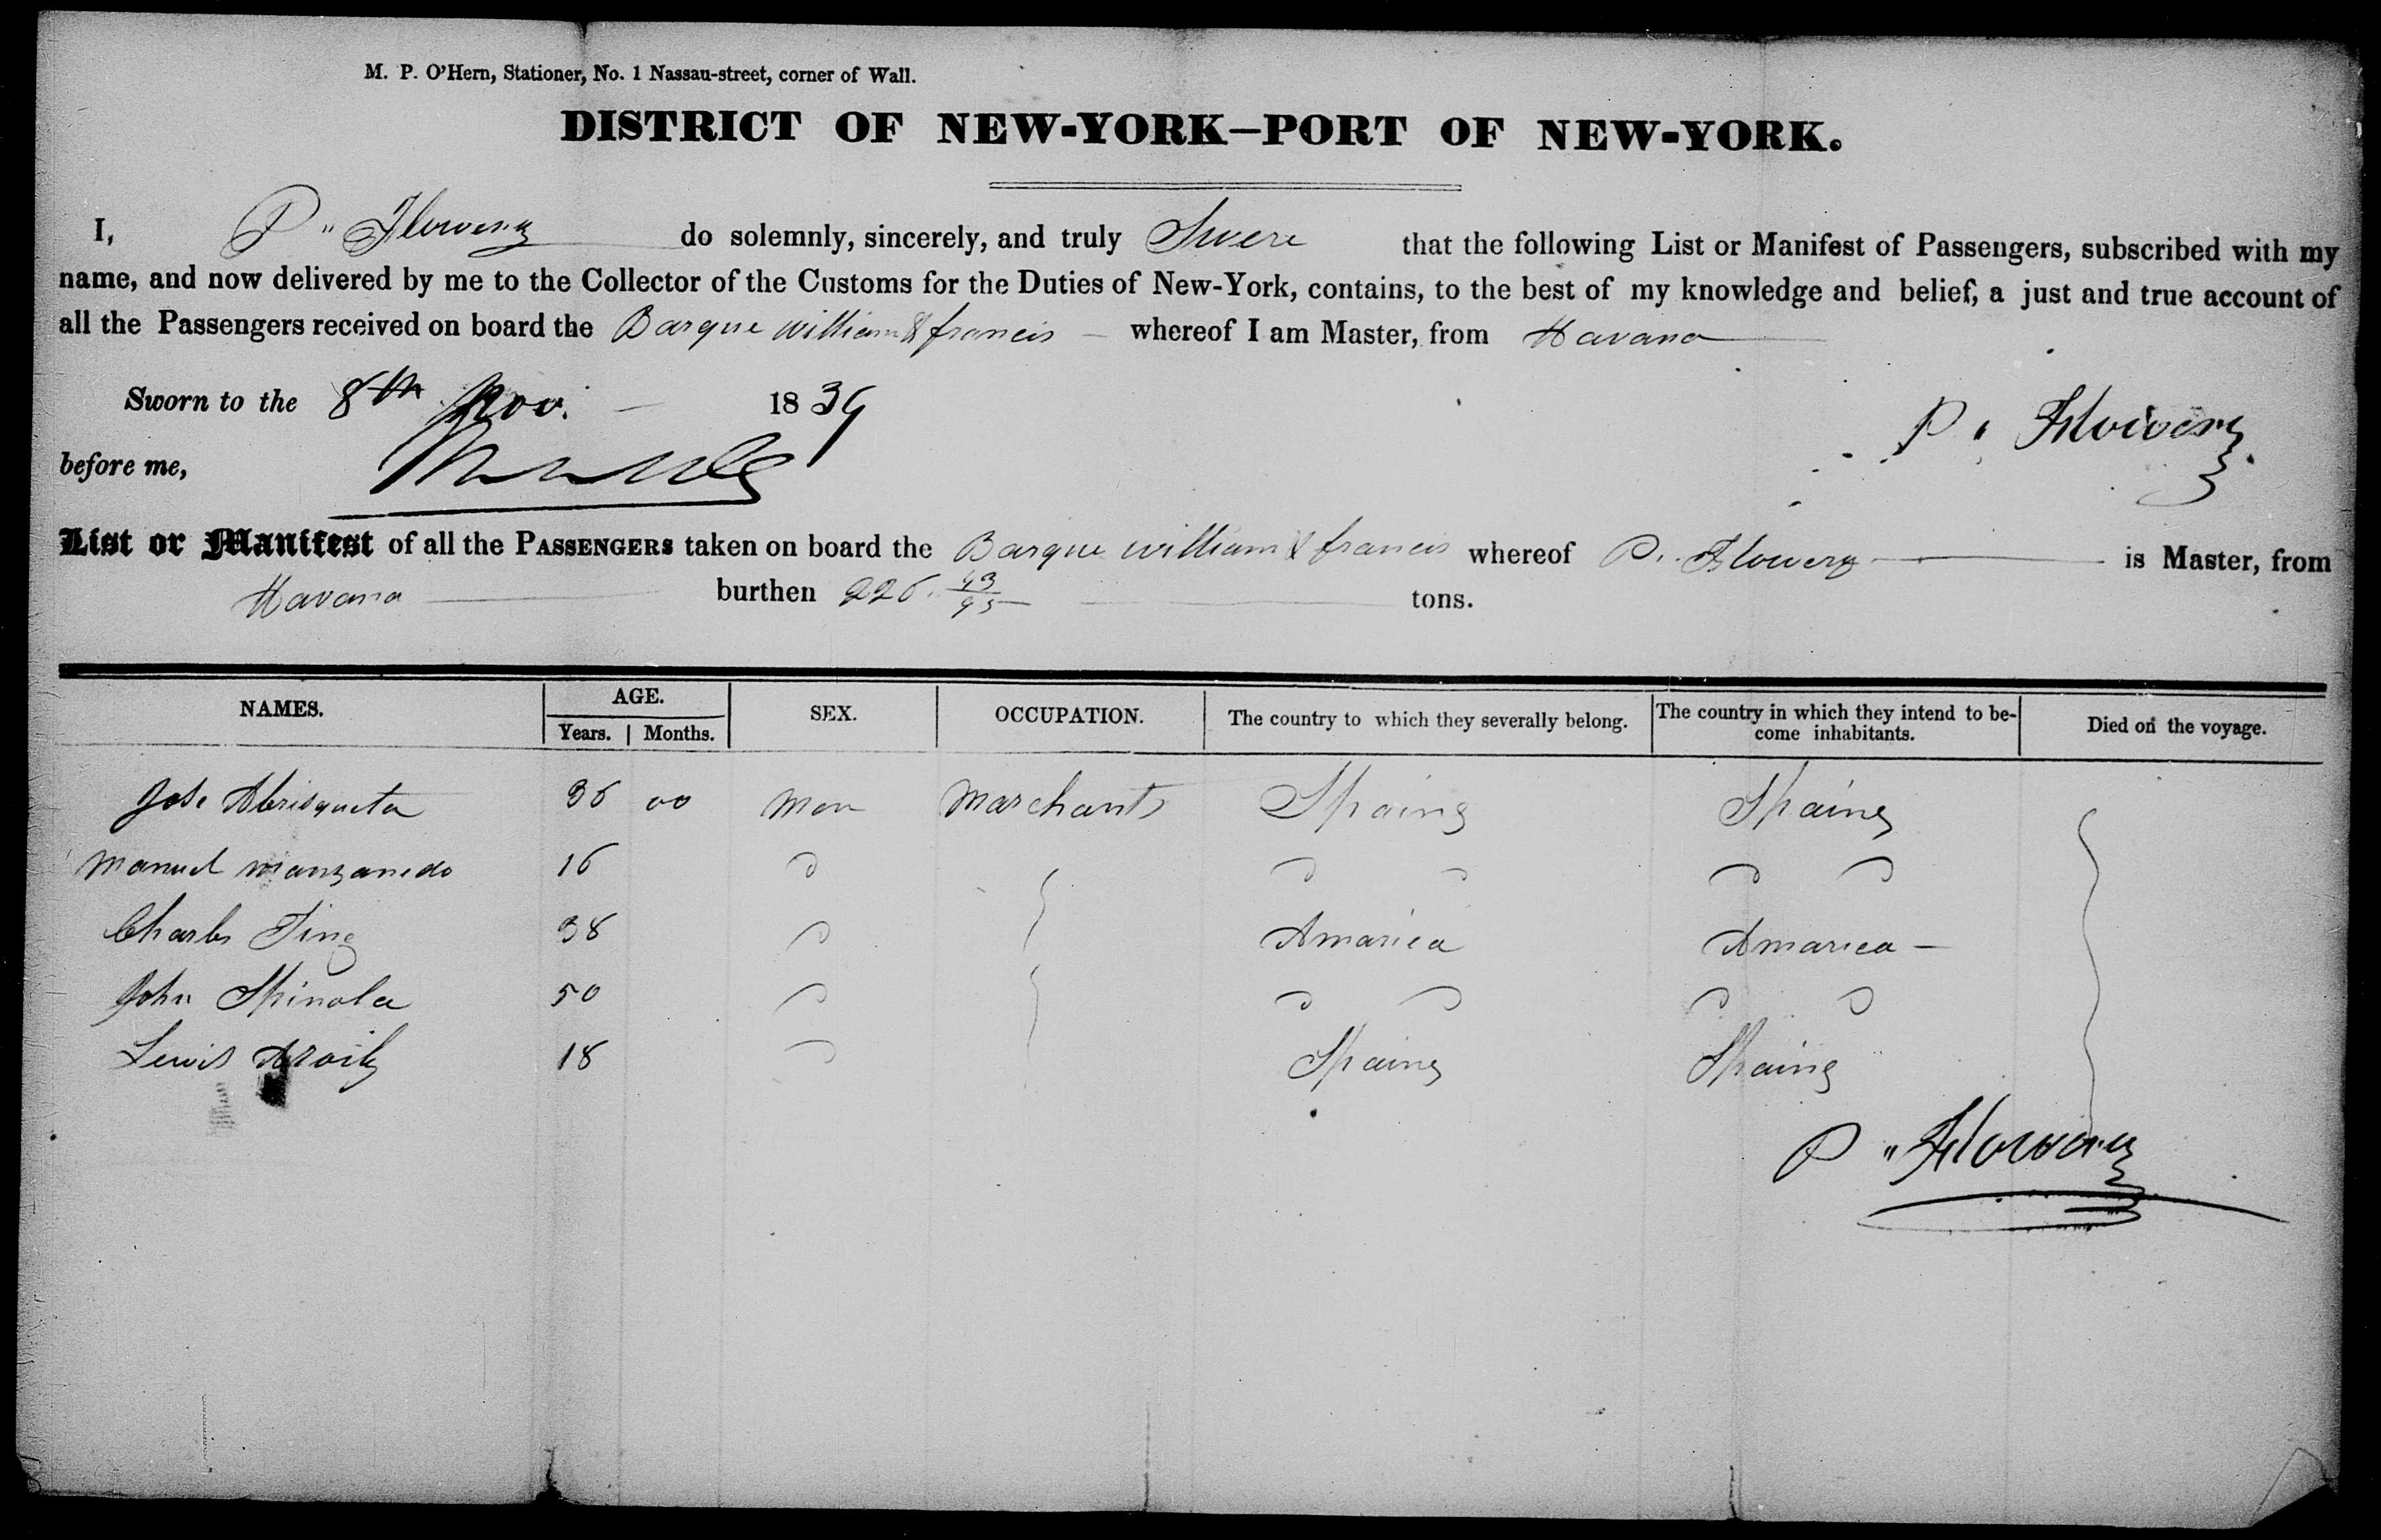 M. P. O'Hern, Stationer, No. 1 Nassau-street, corner of Wall.
DISTRICT OF NEW-YORK—PORT OF NEW-YORK.
I, P" Flowery do solemnly, sincerely, and truly Swere that the following List or Manifest of Passengers, subscribed with my
name, and now delivered by me to the Collector of the Customs for the Duties of New-York, contains, to the best of my knowledge and belief, a just and true account of
all the Passengers received on board the Barque william & francis — whereof I am Master, from Havana
Sworn to the 8th Nov. — 1839
P. Flowery
before me,
List or Manifest of all the PASSENGERS taken on board the Barque william & francis whereof P. Flowery is Master, from
Havana burthen 226. 43/95 tons.
NAMES. AGE. Years. Months. SEX. OCCUPATION. The country to which they severally belong. The country in which they intend to become inhabitants. Died on the voyage.
Jose Abrisqueta 36 00 Man Marchants Spaing Spaing
Manuel manzanedo 16
Charles Ting 38 Amarica Amarica —
John Spinola 50
Lewis 18 Spaing Spaing
P" Flowery